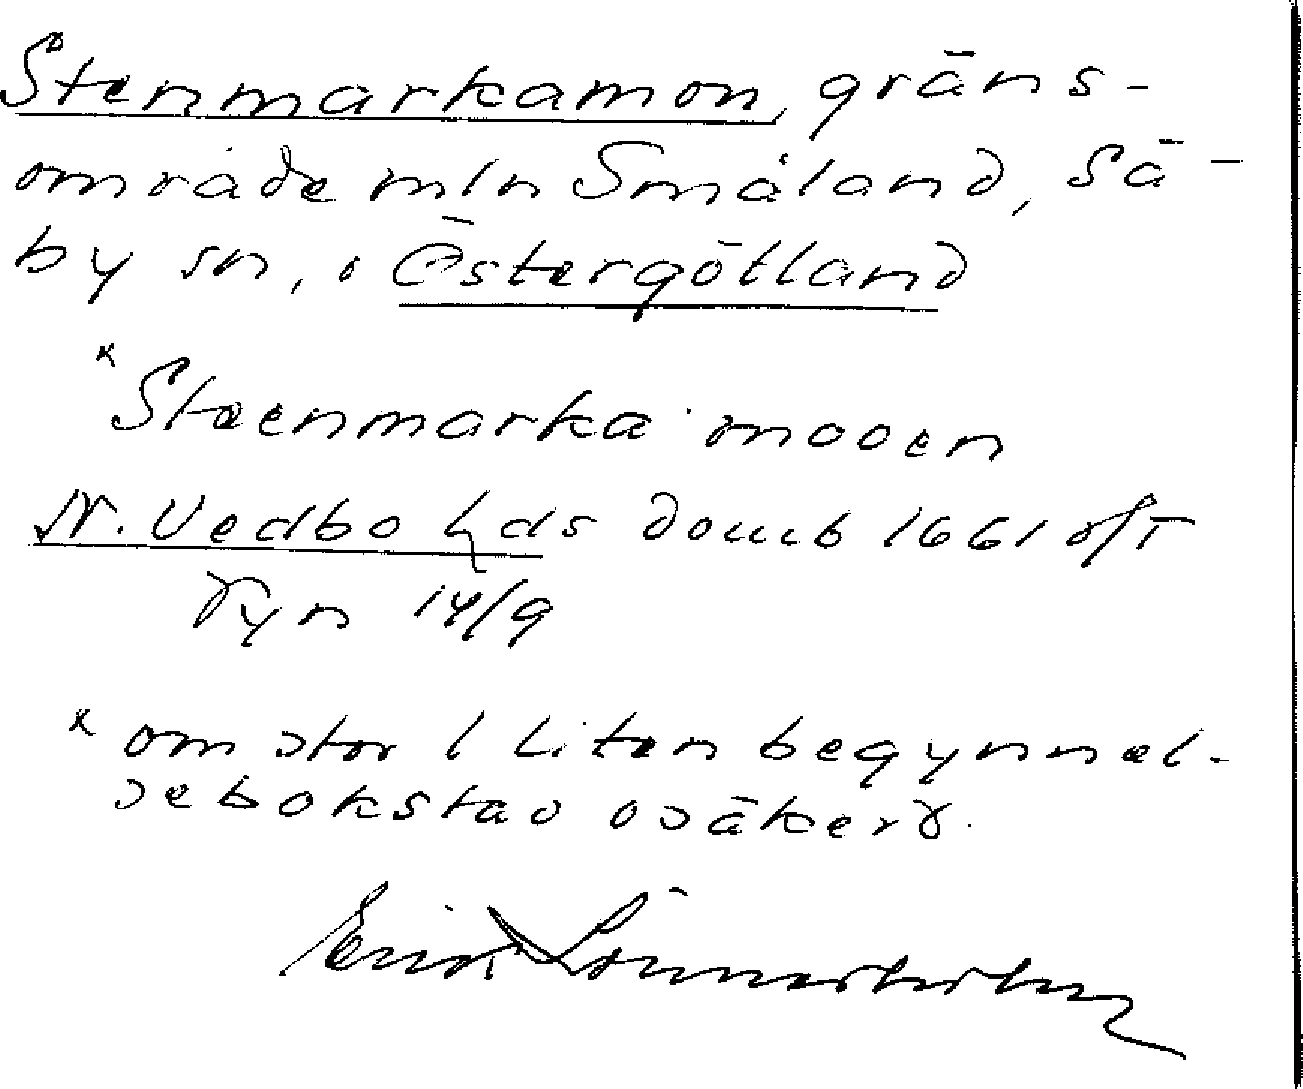 Stenmarkamon, gräns-
område mln Småland, Sä-
by sn, i Östergötland
x Steenmarka mooen
N. Vedbo hds domb 1661 vt
Tyn 14/9
x om stor l liten begynnel-
sebokstav osäkert.
Erik Lönnerholm